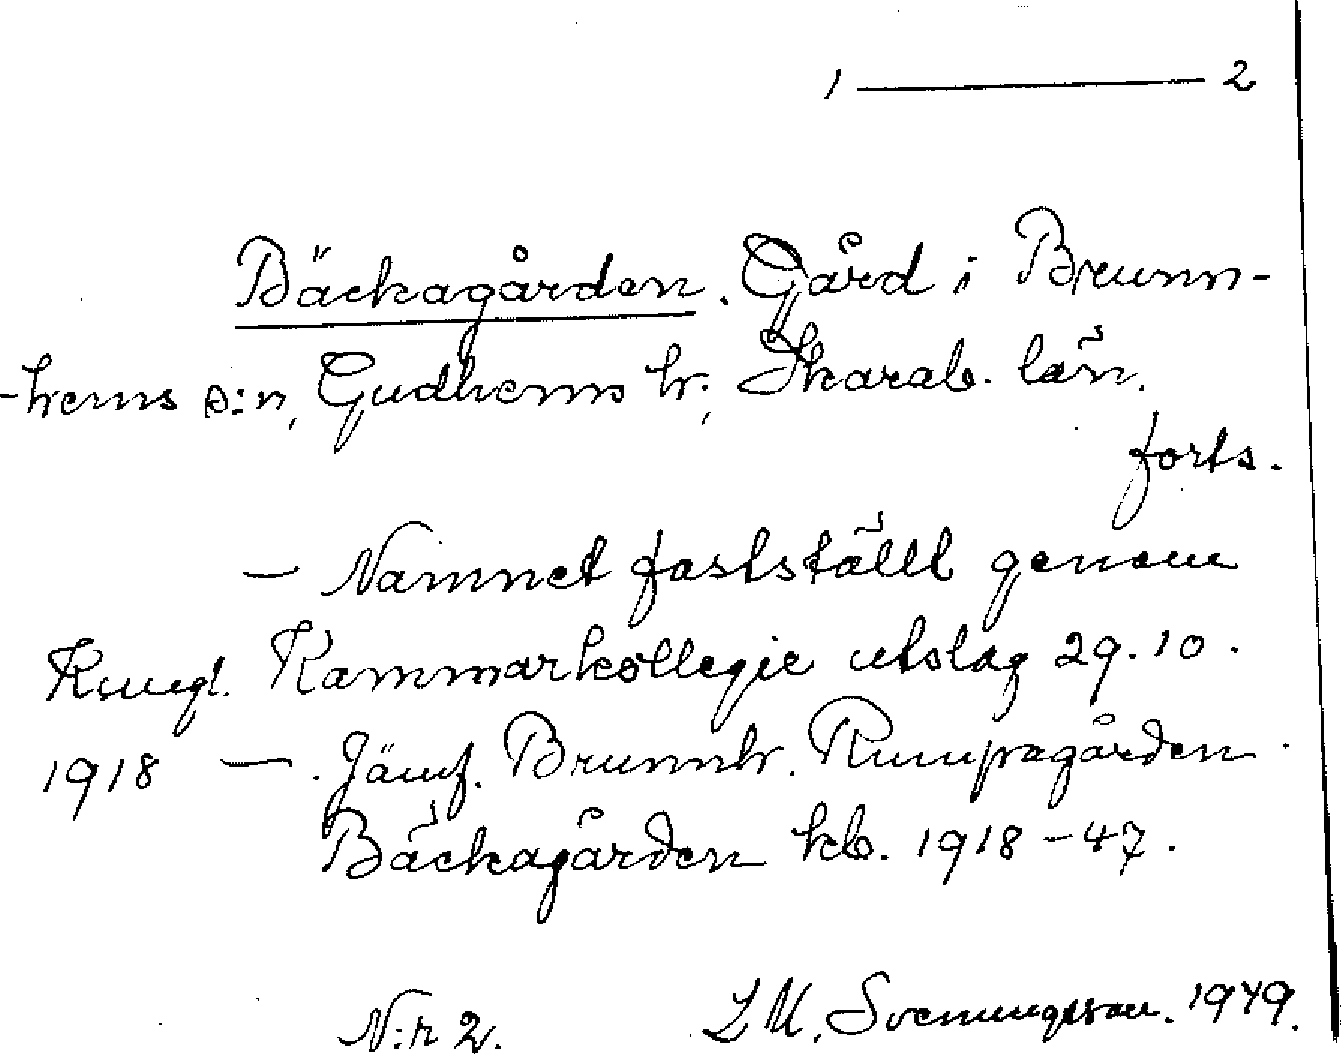 1 ——— 2
Bäckagården. Gård i Brunn-
-hems s:n, Gudhems hr; Skarab. län.
forts.
— Namnet fastställt genom
Kungl. Kammarkollegie utslag 29.10.
1918 — . Jämf. Brunnh. Rumpagården
Bäckagården kb. 1918-47.
N:r 2. L M. Svenungsson. 1949.